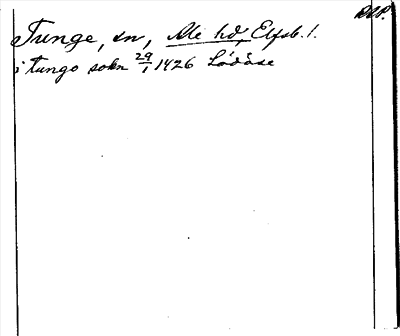 Tunge, sn, Ale hd, Elfsb. l.
i tungo sokn 29/1 1426 Lödöse